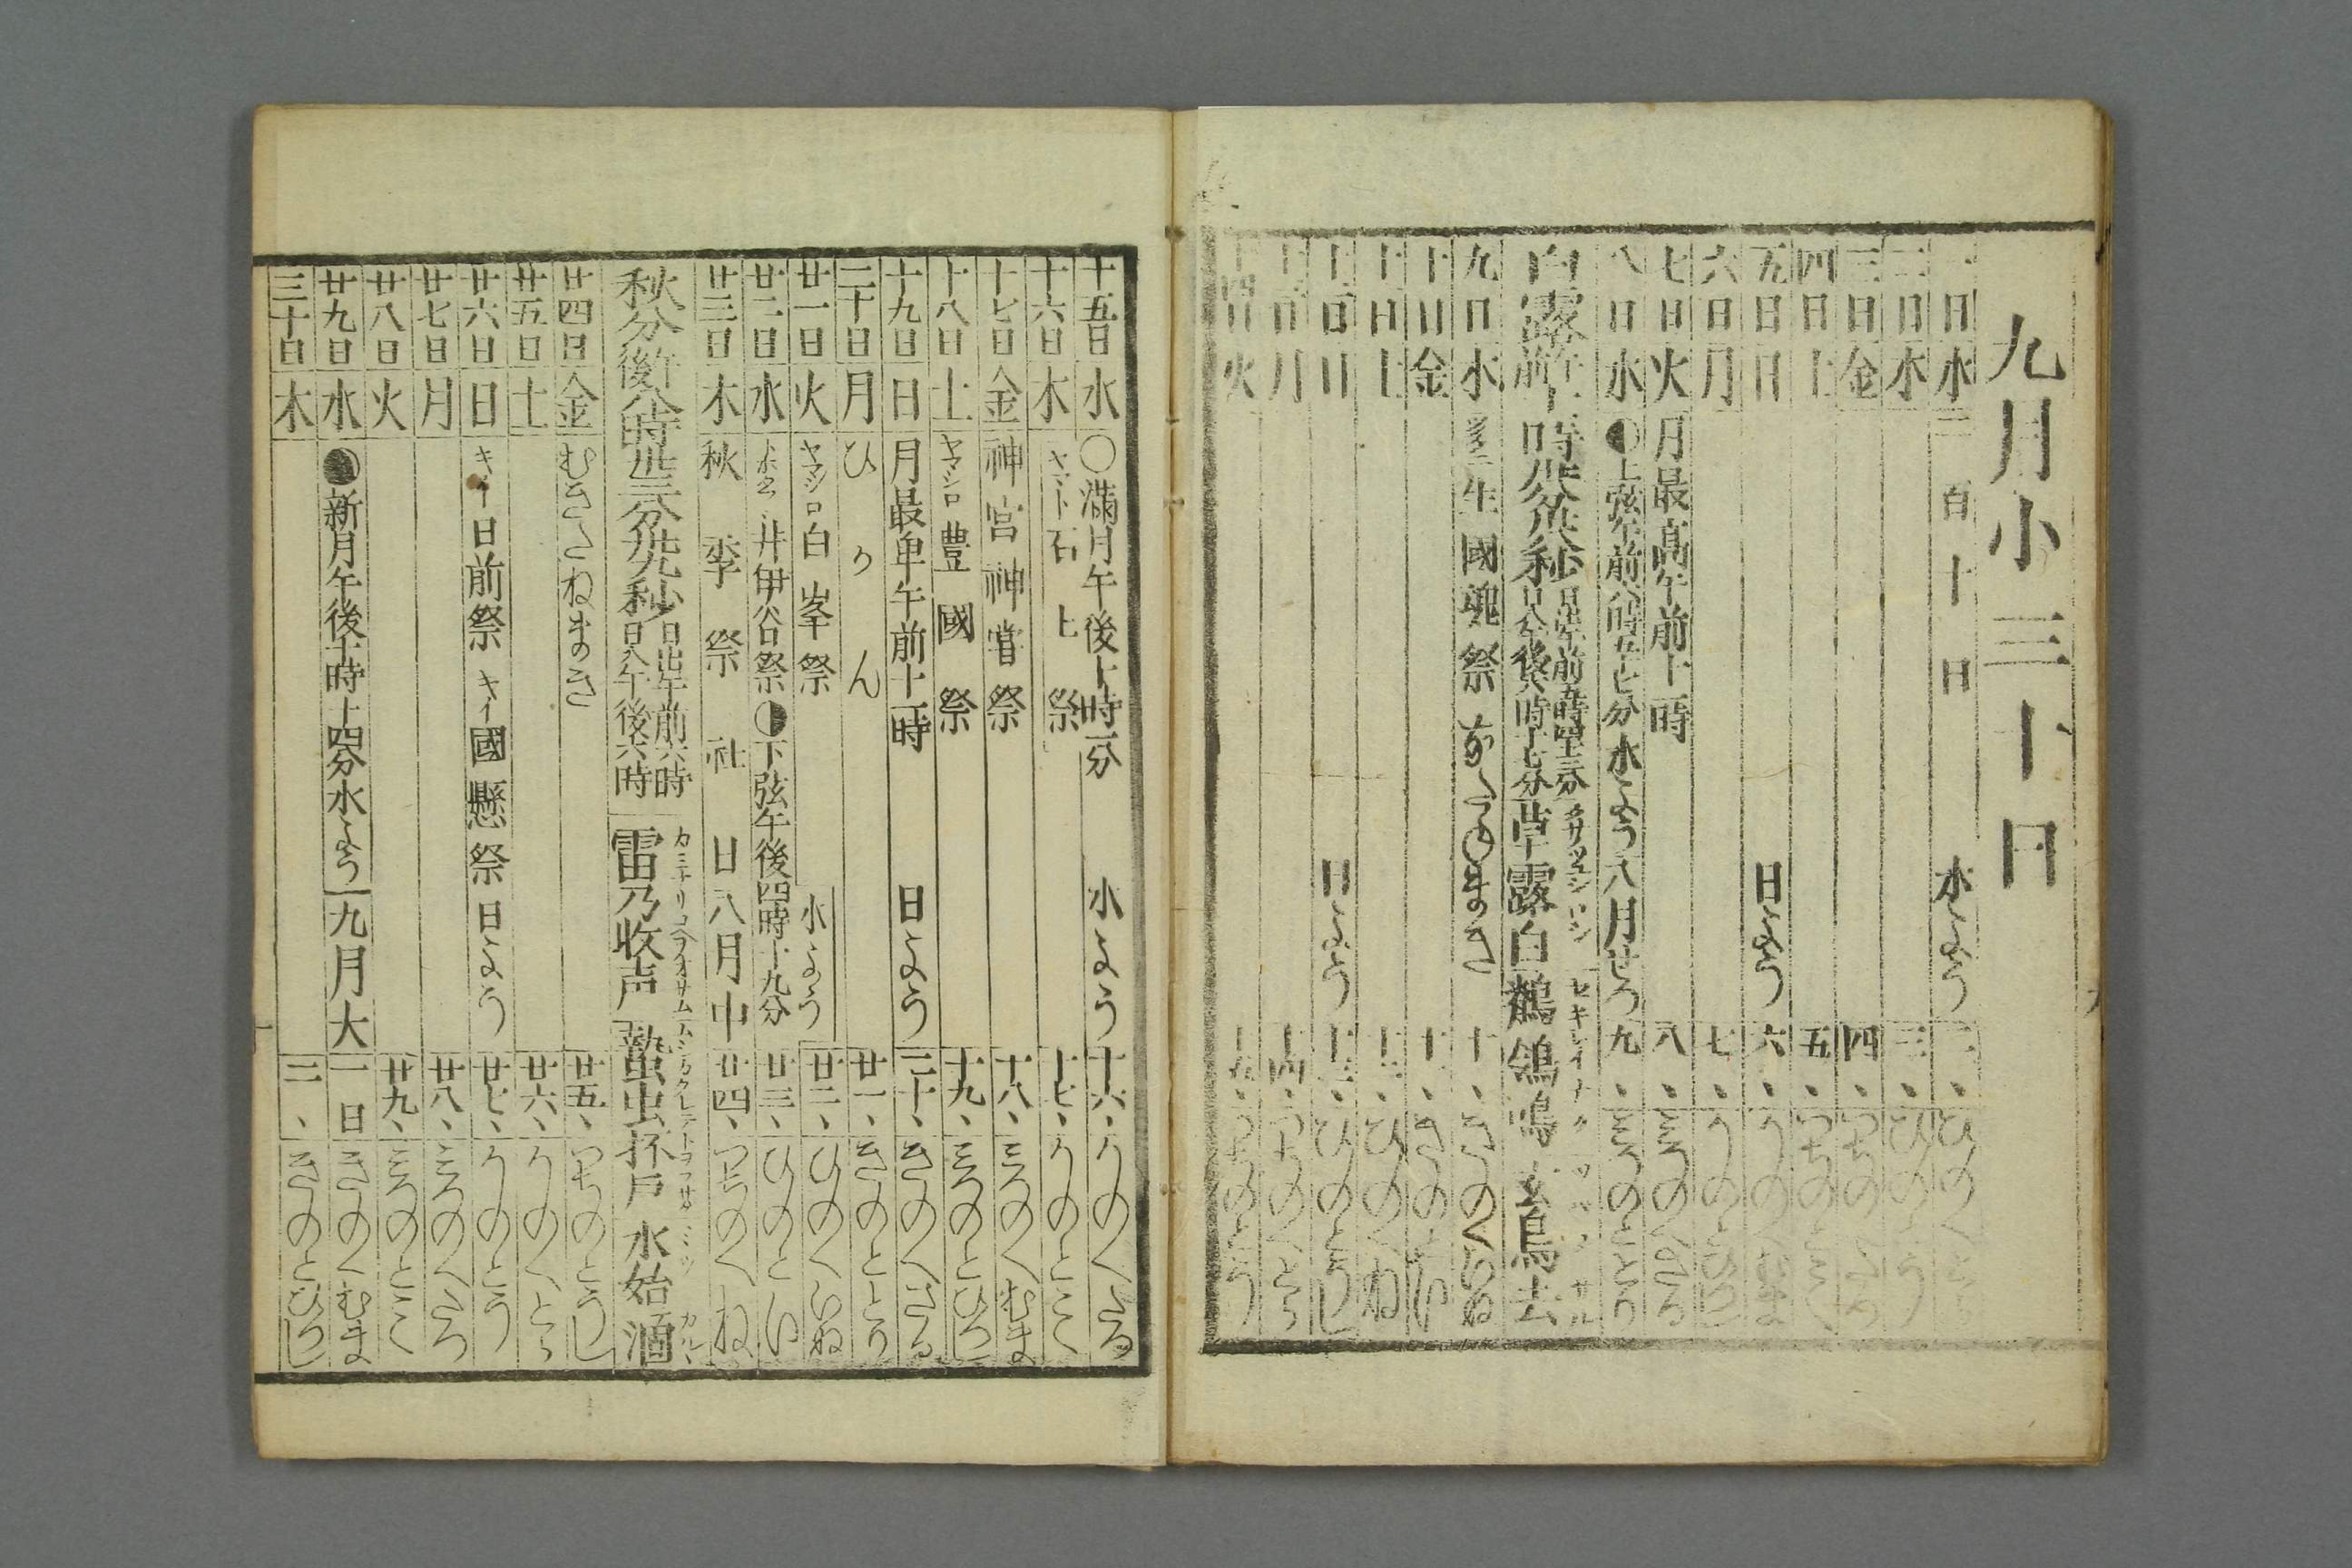 九月小三十日
一日 水 二百十日 水よう 二、ひのへとら
二日 木 三、ひのとう
三日 金 四、つちのへたつ
四日 土 五、つちのとみ
五日 日 日よう 六、かのへむま
六日 月 七、かのとひつじ
七日 火 月最高午前十一時 八、みづのへさる
八日 水 上弦午前八時五十七分 水よう 八月せつ 九、みづのととり
白露 日出午前五時四十三分 日入午後六時十七分 草露白 クサノツユシロシ 鶺鴒鳴 セキレイナク 玄鳥去 ツバメサル
九日 木 生國魂祭 なたねまき 十、きのへいぬ
十日 金
十一日 土
十二日 日 日よう
十三日 月
十四日 火
十五日 水 ○満月午後十時一分 水よう 十六、かのへたつ
十六日 木 ヤマト 石上祭 十七、かのとみ
十七日 金 神宮神嘗祭 十八、みづのへむま
十八日 土 ヤマシロ 豊國祭 十九、みづのとひつじ
十九日 日 月最卑午前十一時 日よう 二十、きのへさる
二十日 月 ひがん 廿一、きのととり
廿一日 火 ヤマシロ 白峯祭 水よう 廿二、ひのへいぬ
廿二日 水 井伊谷祭 下弦午後四時十九分 廿三、ひのとい
廿三日 木 秋季祭 社日 八月中 廿四、つちのへね
秋分 午後八時廿三分廿九秒 日出午前六時 日入午後六時 雷乃收声 カミナリコヘヲオサム 蟄虫坏戸 ムシカクレテトヲフサグ 水始涸 ミヅカルヽ
廿四日 金 むぎたねまき 廿五、つちのとうし
廿五日 土 廿六、かのへとら
廿六日 日 キイ 日前祭 キイ 國懸祭 日よう 廿七、かのとう
廿七日 月 廿八、みづのへたつ
廿八日 火 廿九、みづのとみ
廿九日 水 新月午後十時十四分 水よう 九月大 一日 きのへむま
三十日 木 二、きのとひつじ